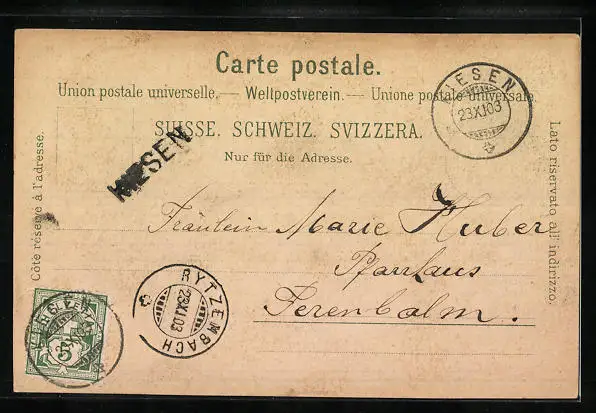 Carte postale.
Union postale universelle. — Weltpostverein. — Unione postale universale.
SUISSE. SCHWEIZ. SVIZZERA.
Nur für die Adresse.
Côte réservé à l'adresse.
Lato riservato all' indirizzo.
KIESEN
23 XI 03
KIESEN
Fräulein Marie Huber
Pfarrhaus
Ferenbalm.
RYTZEMBACH
23 XI 03
5